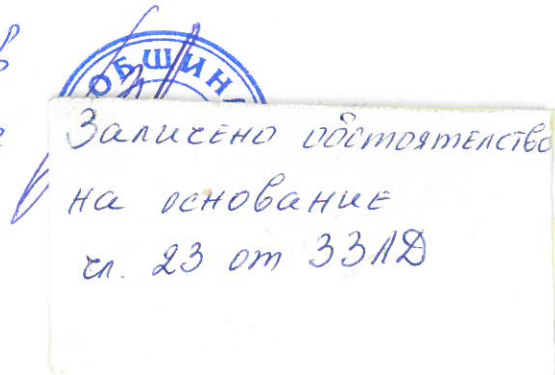 ОБЩИНА
Заличено обстоятелство
на основание
чл. 23 от ЗЗЛД